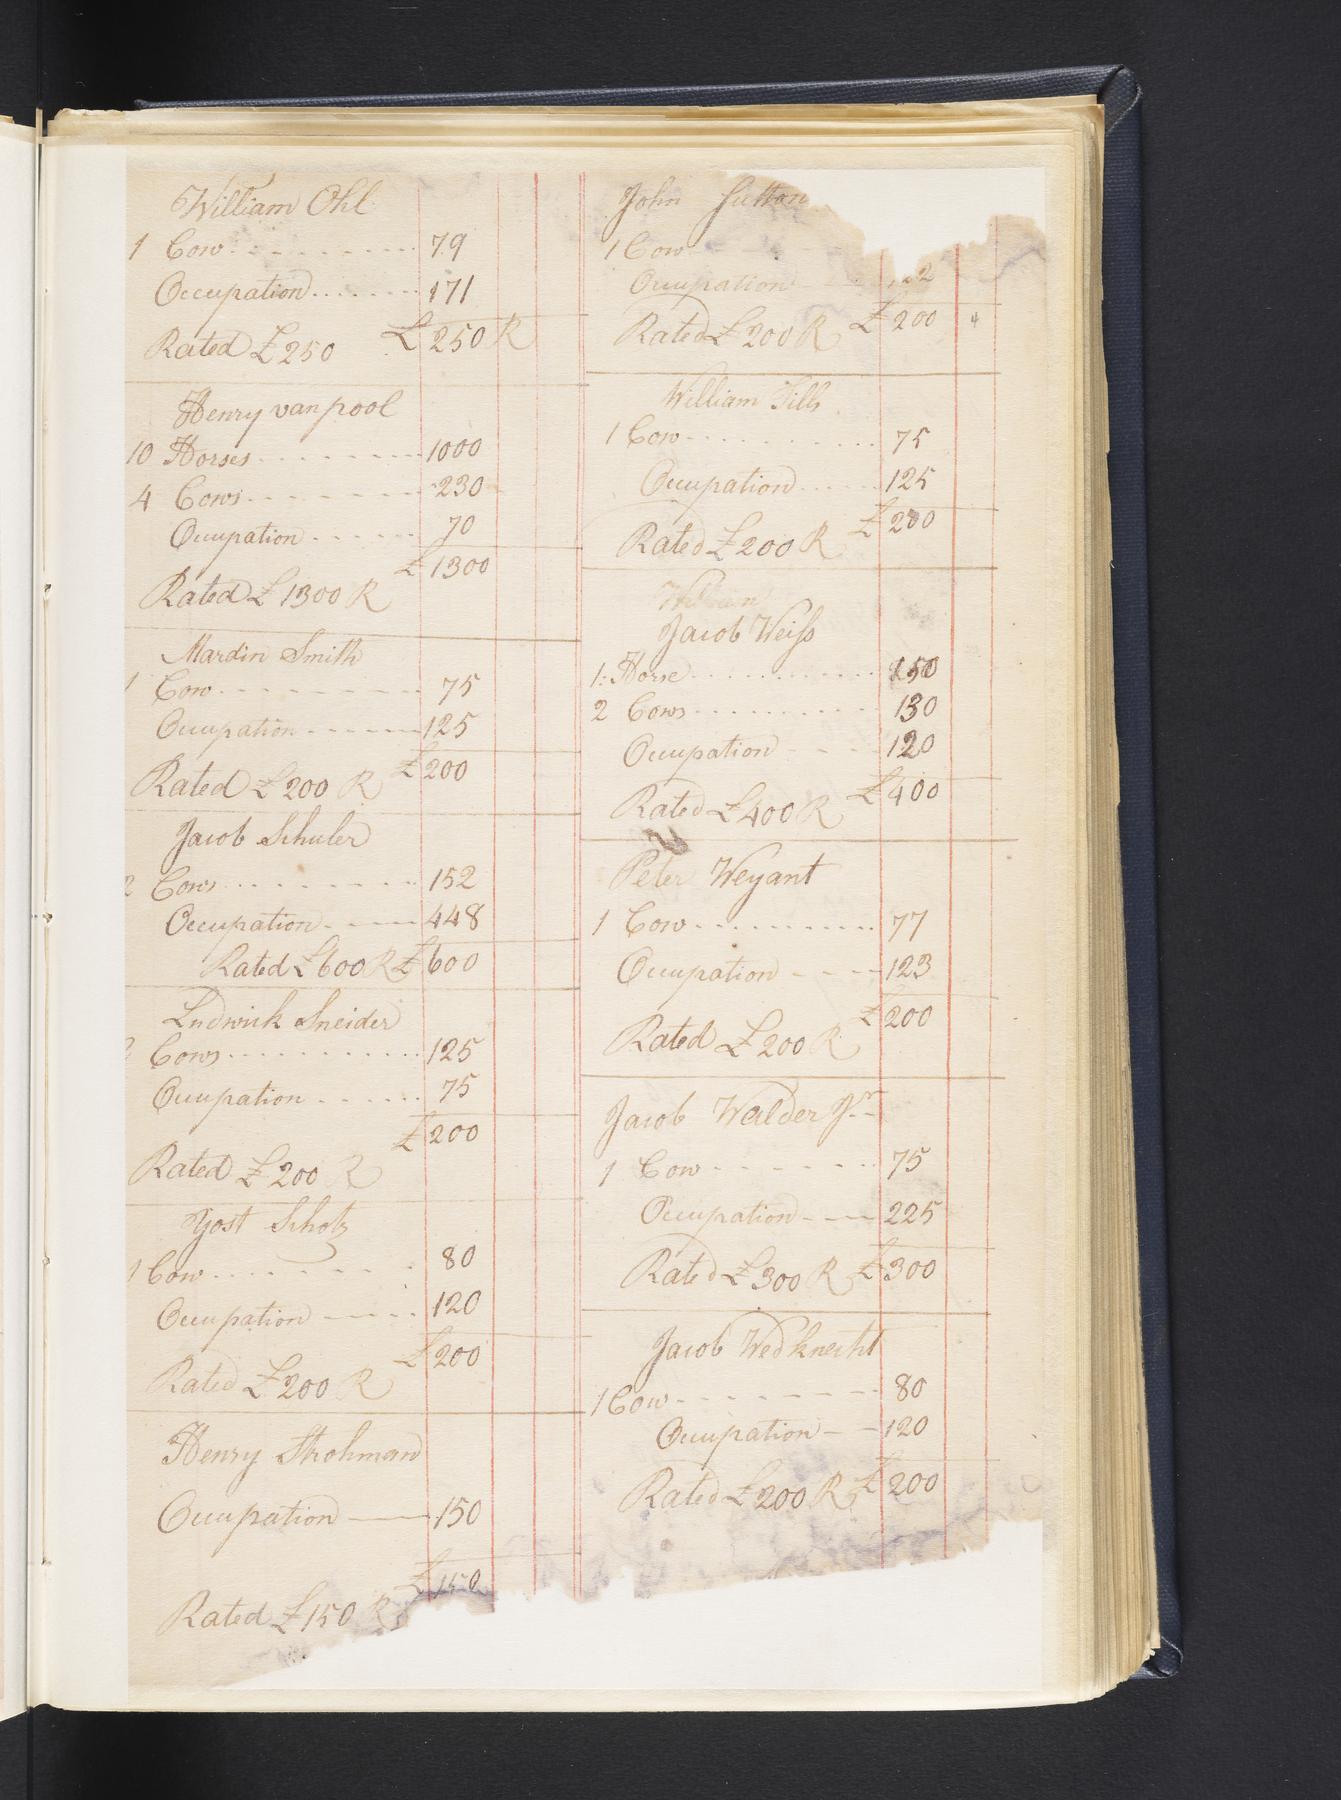 William Ohl
1 Cow 79
Occupation 171
Rated £250 £ 250 R
Henry van pool
10 Horses 1000
4 Cows 230
Occupation 70
£ 1300
Rated £ 1300 R
Mardin Smith
1 Cow 75
Occupation 125
Rated £ 200 R £ 200
Jacob Schuler
2 Cows 152
Occupation 448
Rated £ 600 R £ 600
Ludwick Sneider
Cows 125
Occupation 75
£ 200
Rated £ 200 R
Yost Schotz
1 Cow 80
Occupation 120
£ 200
Rated £ 200 R
Henry Strohman
Occupation 150
£ 150
Rated £ 150 R
John Sutton
1 Cow
Occupation
Rated £ 200 R £ 200 4
William Sills
1 Cow 75
Occupation 125
Rated £ 200 R £ 200
William
Jacob Weiss
1: Horse 150
2 Cows 130
Occupation 120
Rated £ 400 R £ 400
Peter Weyant
1 Cow 77
Occupation 123
£ 200
Rated £ 200 R
Jacob Walder Jr
1 Cow 75
Occupation 225
Rated £ 300 R £ 300
Jacob Wedknecht
1 Cow 80
Occupation 120
Rated £ 200 R £ 200